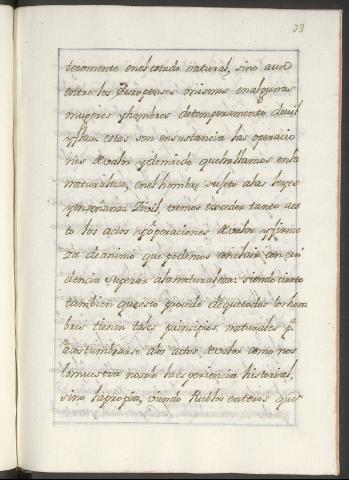 73
teramente en el estado natural, sino aun
entre los mismos en algunas
mugeres y hombres de temperamento devil
y flaco estas son en sustancia las operacio
nes de valor y de miedo que hallamos en la
naturaleza, en el hombre sujeto a las leyes
y enseñanza Zivil, vemos exceder tanto a es
to los actos y operaciones de valor y firme
za de animo que podemos concluir con evi
dencia superar a la naturaleza: siendo cierto
tambien que esto procede de que todos los hom
bres tienen tales principios naturales pª
acostumbrarse a los actos de valor como nos
lo muestra no solo la esperiencia historial,
sino la propria, viendo Pueblos enteros que